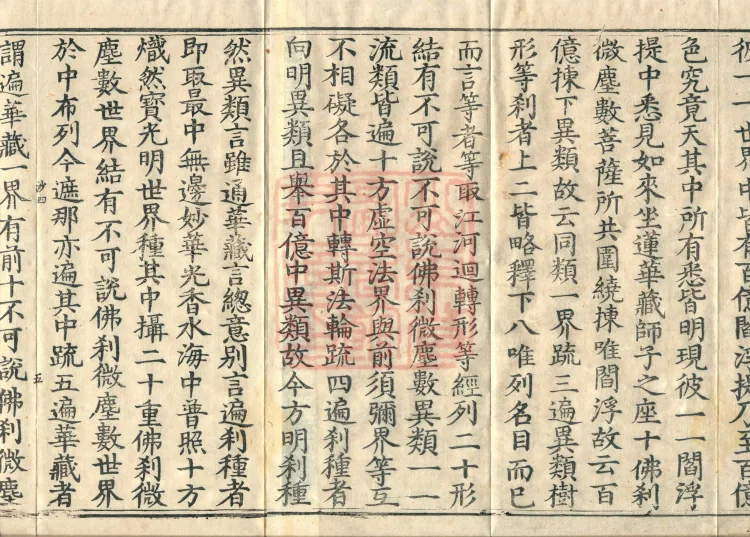 彼一一世界中皆有百億閻浮提乃至百億
色究竟天其中所有悉皆明現彼一一閻浮
提中悉見如來坐蓮華藏師子之座十佛刹
微塵數菩薩所共圍繞揀唯閻浮故云百
億揀下異類故云同類一界䟽三遍異類樹
形等刹者上二皆略釋下八唯列名目而已
而言等者等取江河迴轉形等經列二十形
結有不可說不可說佛刹微塵數異類一一
流類皆遍十方虛空法界與前須彌界等互
不相礙各於其中轉斯法輪䟽四遍刹種者
向明異類且舉百億中異類故今方明刹種
然異類言雖通華藏言總意別言遍刹種者
即取最中無邊妙華光香水海中普照十方
熾然寶光明世界種其中攝二十重佛刹微
塵數世界結有不可說佛刹微塵數世界
於中布列今遮那亦遍其中䟽五遍華藏者
沙四 五
謂遍華藏一界有前十不可說佛刹微塵